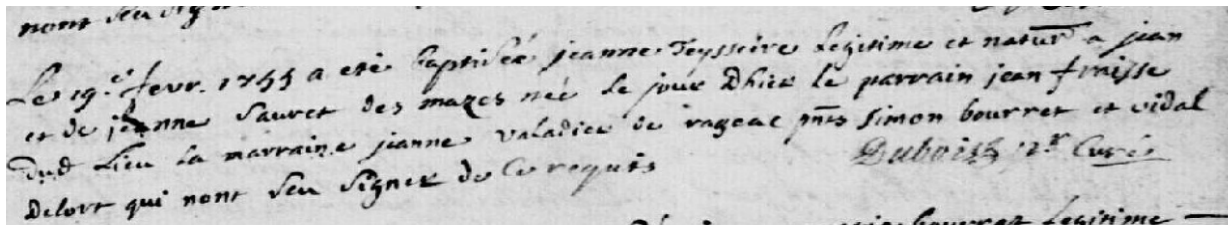 nont seu sig
Le 19.e fevr. 1755 a eté baptisée jeanne Teysseire legitime et natur a jean
et de jeanne Sauret des mazes née le jour Dhier le parrain jean fraisse
dud. lieu la marraine jeanne valadier de rageac pnts simon bourret et vidal
Delort qui nont seu signer de ce requis
Duboish pr. Curé
bourret legitime